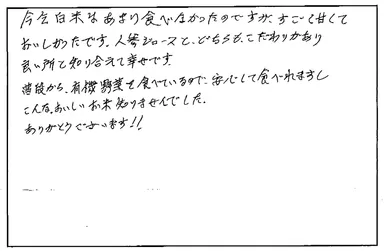 今迄白米はあまり食べなかったのですが、すごく甘くて
おいしかったです。人参ジュースと、どちらも、こだわりがあり
良い所と知り合えて幸せです。
普段から、有機野菜を食べているので、安心して食べれますし
こんなおいしいお米知りませんでした。
ありがとうございます!!